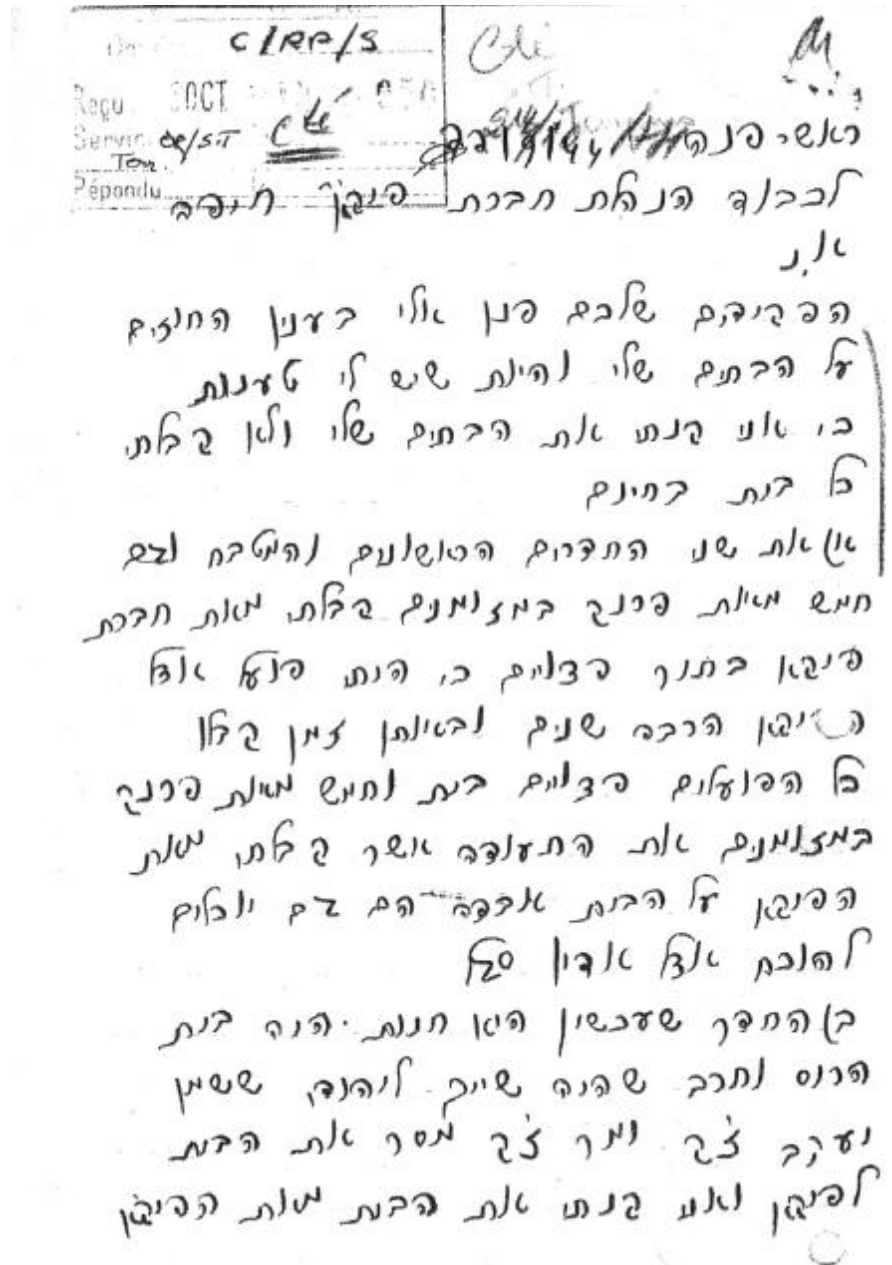 C/RP/S
Cté
Reçu OCT
Servic OR/S.T Cté
Ton
Répondu
ראש פנה
לכבוד הנהלת חברת פיקא חיפה
א.נ
הפקידים שלכם פנו אלי בענין החוזים
על הבתים שלי והיות שיש לי טענות
כי אני קניתי את הבתים שלי ולא קבלתי
כל בית בחינם
א) את שני החדרים הראשונים והמטבח וגם
חמש מאות פרנק במזומנים קבלתי מאת חברת
פיקא בתור פצויים כי היתי פועל אצל
הפיקא הרבה שנים ובאותו זמן קבלו
כל הפועלים פצויים בית וחמש מאות פרנק
במזומנים את התעודה אשר קבלתי מאת
הפיקא על הבית אבדה הם גם יוכלים
להוכח אצל אדון סגל
ב) החדר שעכשיו היא חנות היה בית
הרוס וחרב שהיה שייך ליהודי ששמו
יעקב צ'ק ומר צ'ק מסר את הבית
לפיקא ואני קניתי את הבית מאת הפיקא